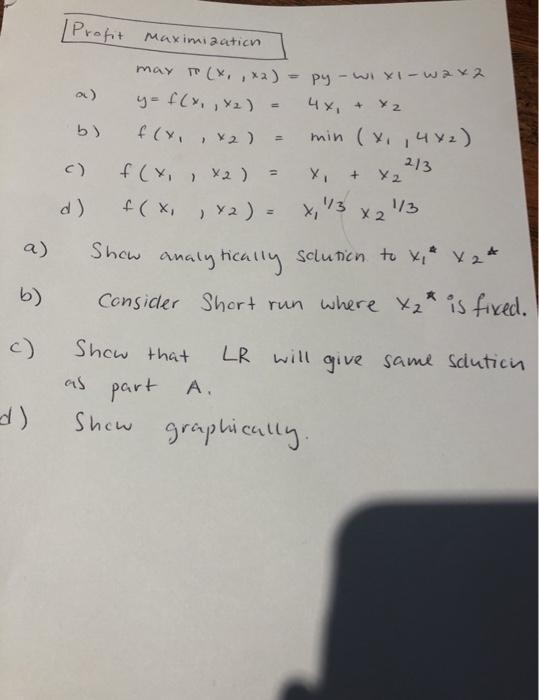 Profit Maximization
max π (x₁, x2) = py - w1 x1 - w2x2
a) y = f(x₁, x₂) = 4x₁ + x₂
b) f(x₁, x₂) = min (x₁, 4x₂)
c) f(x₁, x₂) = x₁ + x₂^2/3
d) f(x₁, x₂) = x₁^1/3 x₂^1/3
a) Show analytically solution to x₁* x₂*
b) Consider Short run where x₂* is fixed.
c) Show that LR will give same solution
as part A.
d) Show graphically.